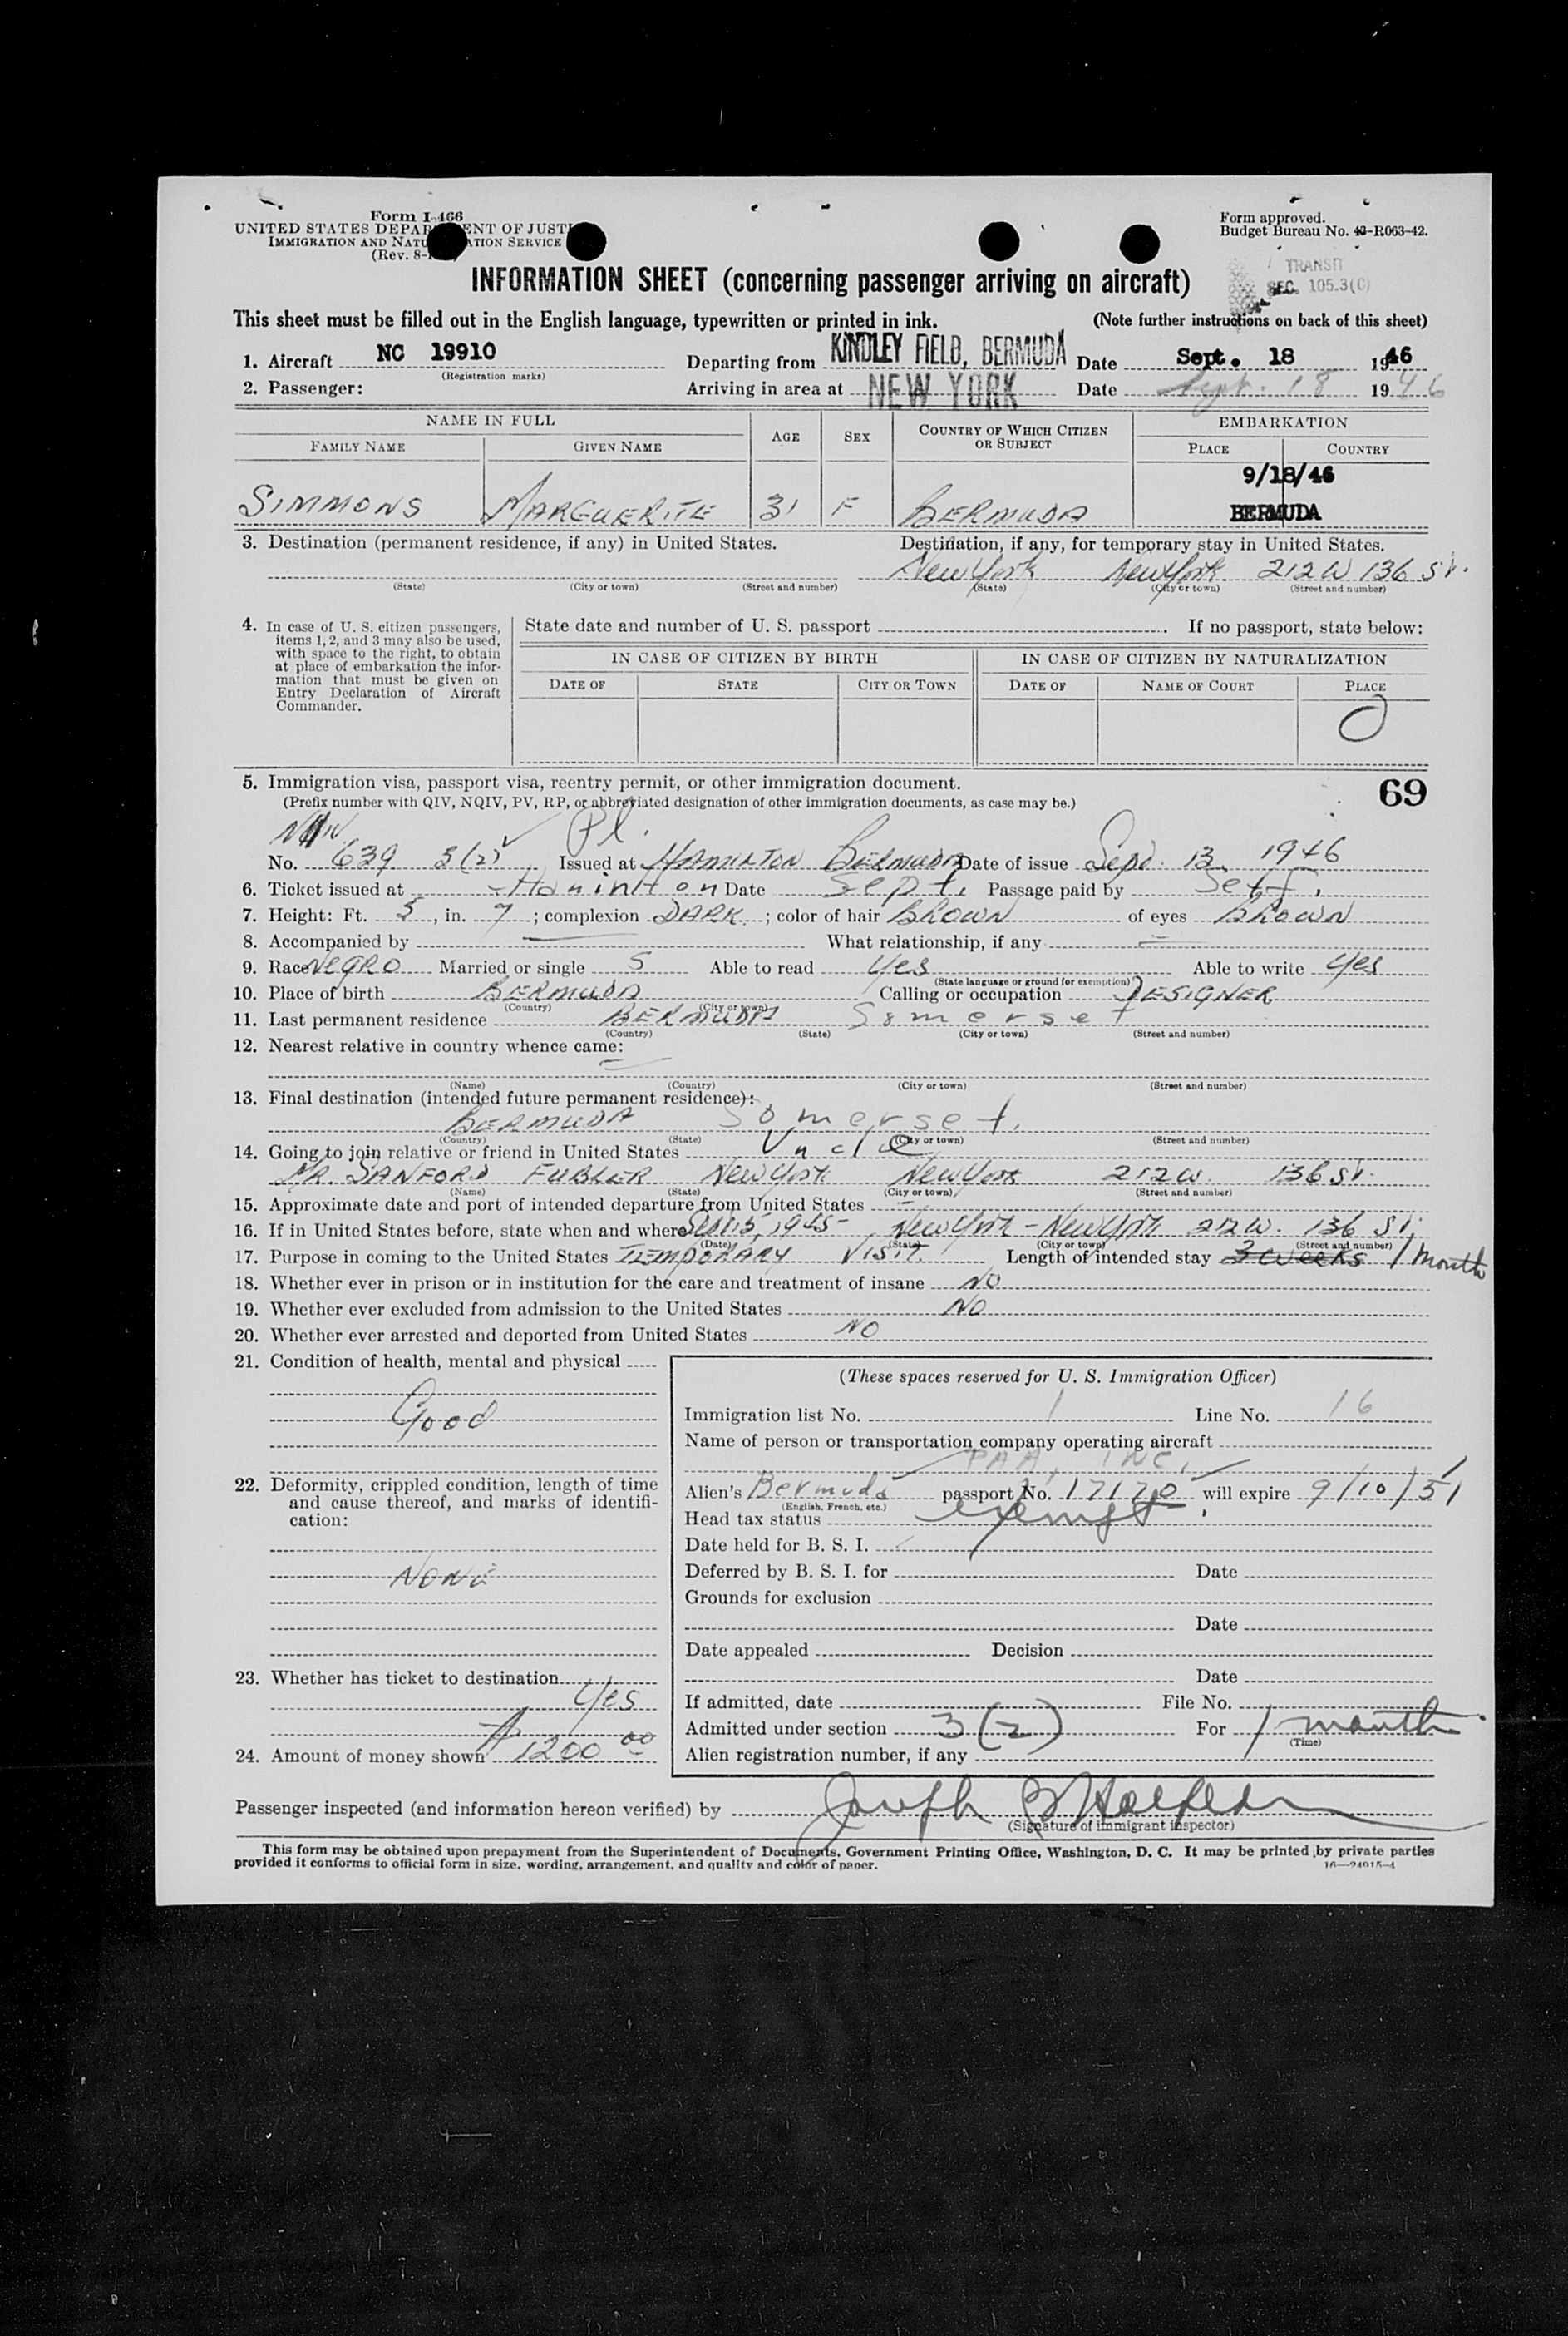 Form I-466
UNITED STATES DEPARTMENT OF JUSTICE
IMMIGRATION AND NATURALIZATION SERVICE
(Rev. 8-
Form approved.
Budget Bureau No. 43-R063-42.
TRANSIT
SEC. 105.3(C)
INFORMATION SHEET (concerning passenger arriving on aircraft)
This sheet must be filled out in the English language, typewritten or printed in ink. (Note further instructions on back of this sheet)
1. Aircraft NC 19910 Departing from KINDLEY FIELD, BERMUDA Date Sept. 18 1946
(Registration marks)
2. Passenger: Arriving in area at NEW YORK Date Sept. 18 1946
NAME IN FULL AGE SEX COUNTRY OF WHICH CITIZEN OR SUBJECT EMBARKATION
FAMILY NAME GIVEN NAME PLACE COUNTRY
9/18/46
SIMMONS MARGUERITE 31 F BERMUDA BERMUDA
3. Destination (permanent residence, if any) in United States. Destination, if any, for temporary stay in United States.
New York New York 212 W 136 St.
(State) (City or town) (Street and number) (State) (City or town) (Street and number)
4. In case of U. S. citizen passengers, items 1, 2, and 3 may also be used, with space to the right, to obtain at place of embarkation the information that must be given on Entry Declaration of Aircraft Commander.
State date and number of U. S. passport . If no passport, state below:
IN CASE OF CITIZEN BY BIRTH IN CASE OF CITIZEN BY NATURALIZATION
DATE OF STATE CITY OR TOWN DATE OF NAME OF COURT PLACE
O
5. Immigration visa, passport visa, reentry permit, or other immigration document. 69
(Prefix number with QIV, NQIV, PV, RP, or abbreviated designation of other immigration documents, as case may be.)
Pl.
No. 639 3(2) Issued at HAMILTON BERMUDA Date of issue Sept. 13, 1946
6. Ticket issued at Haminlton Date Sept. Passage paid by Self.
7. Height: Ft. 5, in. 7; complexion DARK; color of hair BROWN of eyes BROWN
8. Accompanied by — What relationship, if any —
9. Race NEGRO Married or single S Able to read Yes Able to write Yes
(State language or ground for exemption)
10. Place of birth BERMUDA Calling or occupation DESIGNER
(Country) (City or town)
11. Last permanent residence BERMUDA Somerset
(Country) (State) (City or town) (Street and number)
12. Nearest relative in country whence came:
(Name) (Country) (City or town) (Street and number)
13. Final destination (intended future permanent residence):
BERMUDA Somerset.
(Country) (State) (City or town) (Street and number)
14. Going to join relative or friend in United States Uncle
MR. SANFORD FUBLER New York New York 212 W. 136 St.
(Name) (State) (City or town) (Street and number)
15. Approximate date and port of intended departure from United States —
16. If in United States before, state when and where 1945 - New York - New York 212 W. 136 St.
(Date) (State) (City or town) (Street and number)
17. Purpose in coming to the United States TEMPORARY VISIT. Length of intended stay 3 weeks 1 month
18. Whether ever in prison or in institution for the care and treatment of insane NO
19. Whether ever excluded from admission to the United States NO
20. Whether ever arrested and deported from United States NO
21. Condition of health, mental and physical
Good
22. Deformity, crippled condition, length of time and cause thereof, and marks of identification:
None
23. Whether has ticket to destination
Yes
24. Amount of money shown $1200 00
(These spaces reserved for U. S. Immigration Officer)
Immigration list No. 1 Line No. 16
Name of person or transportation company operating aircraft
PAA, INC.
Alien's Bermuda passport No. 17170 will expire 9/10/51
(English, French, etc.)
Head tax status exempt
Date held for B. S. I.
Deferred by B. S. I. for Date
Grounds for exclusion
Date
Date appealed Decision
Date
If admitted, date File No.
Admitted under section 3(2) For 1 month
(Time)
Alien registration number, if any
Passenger inspected (and information hereon verified) by Joseph
(Signature of immigrant inspector)
This form may be obtained upon prepayment from the Superintendent of Documents, Government Printing Office, Washington, D. C. It may be printed by private parties
provided it conforms to official form in size, wording, arrangement, and quality and color of paper. 16—24015-4